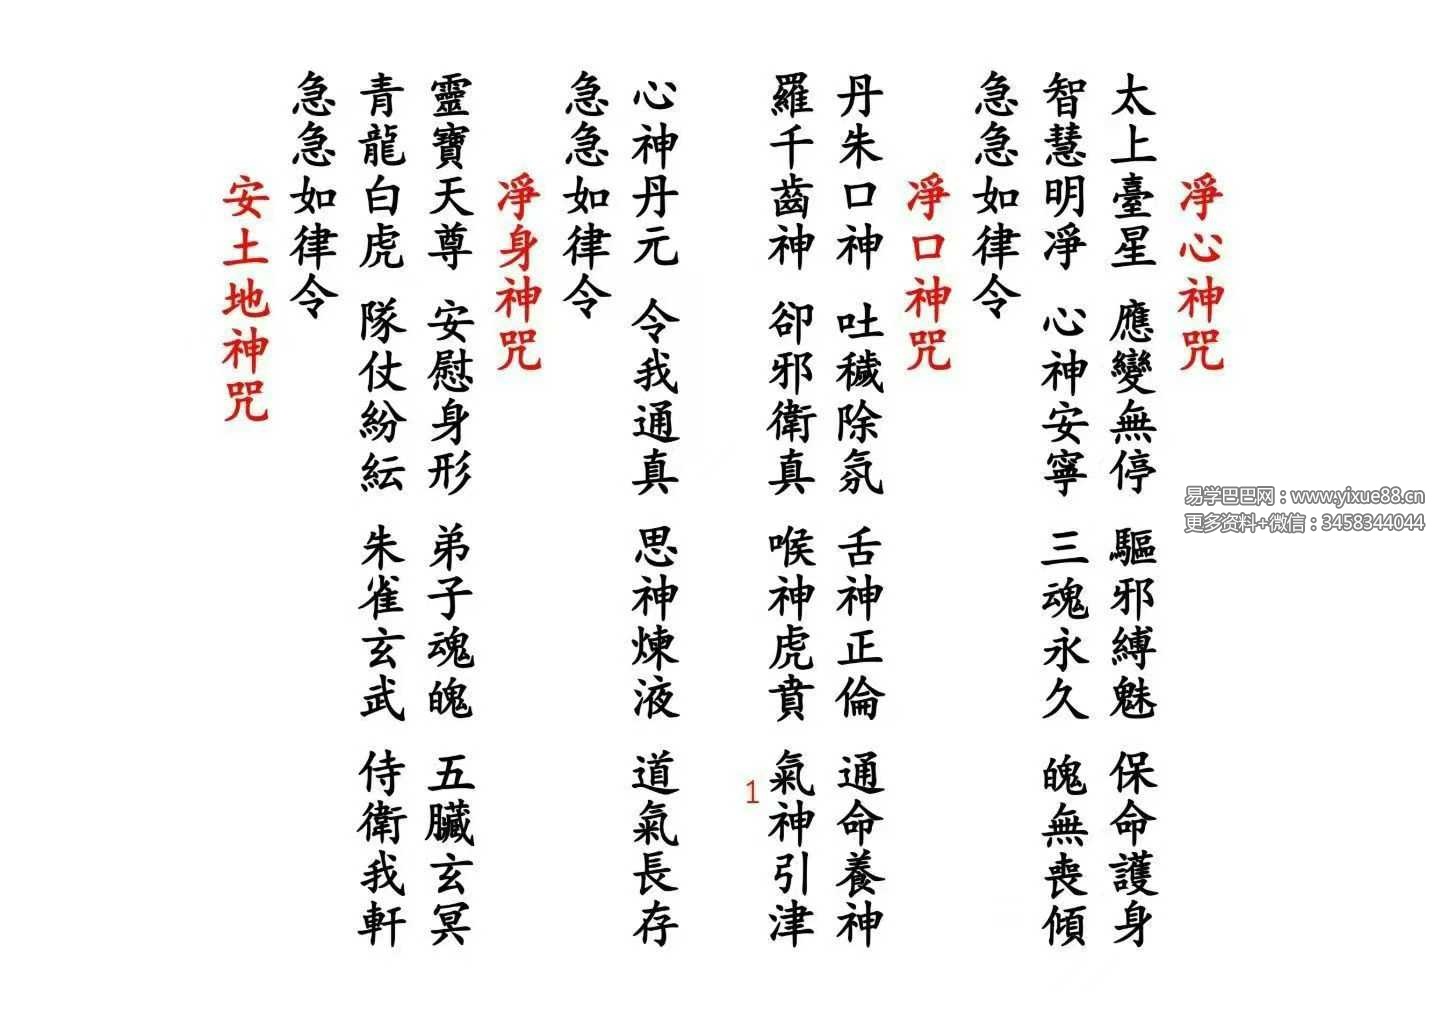 淨心神咒
太上臺星 應變無停 驅邪縛魅 保命護身
智慧明淨 心神安寧 三魂永久 魄無喪傾
急急如律令
淨口神咒
丹朱口神 吐穢除氛 舌神正倫 通命養神
羅千齒神 卻邪衛真 喉神虎賁 氣神引津
心神丹元 令我通真 思神煉液 道氣長存
急急如律令
淨身神咒
靈寶天尊 安慰身形 弟子魂魄 五臟玄冥
青龍白虎 隊仗紛紜 朱雀玄武 侍衛我軒
急急如律令
安土地神咒
1
易学巴巴网：www.yixue88.cn
更多资料+微信：3458344044